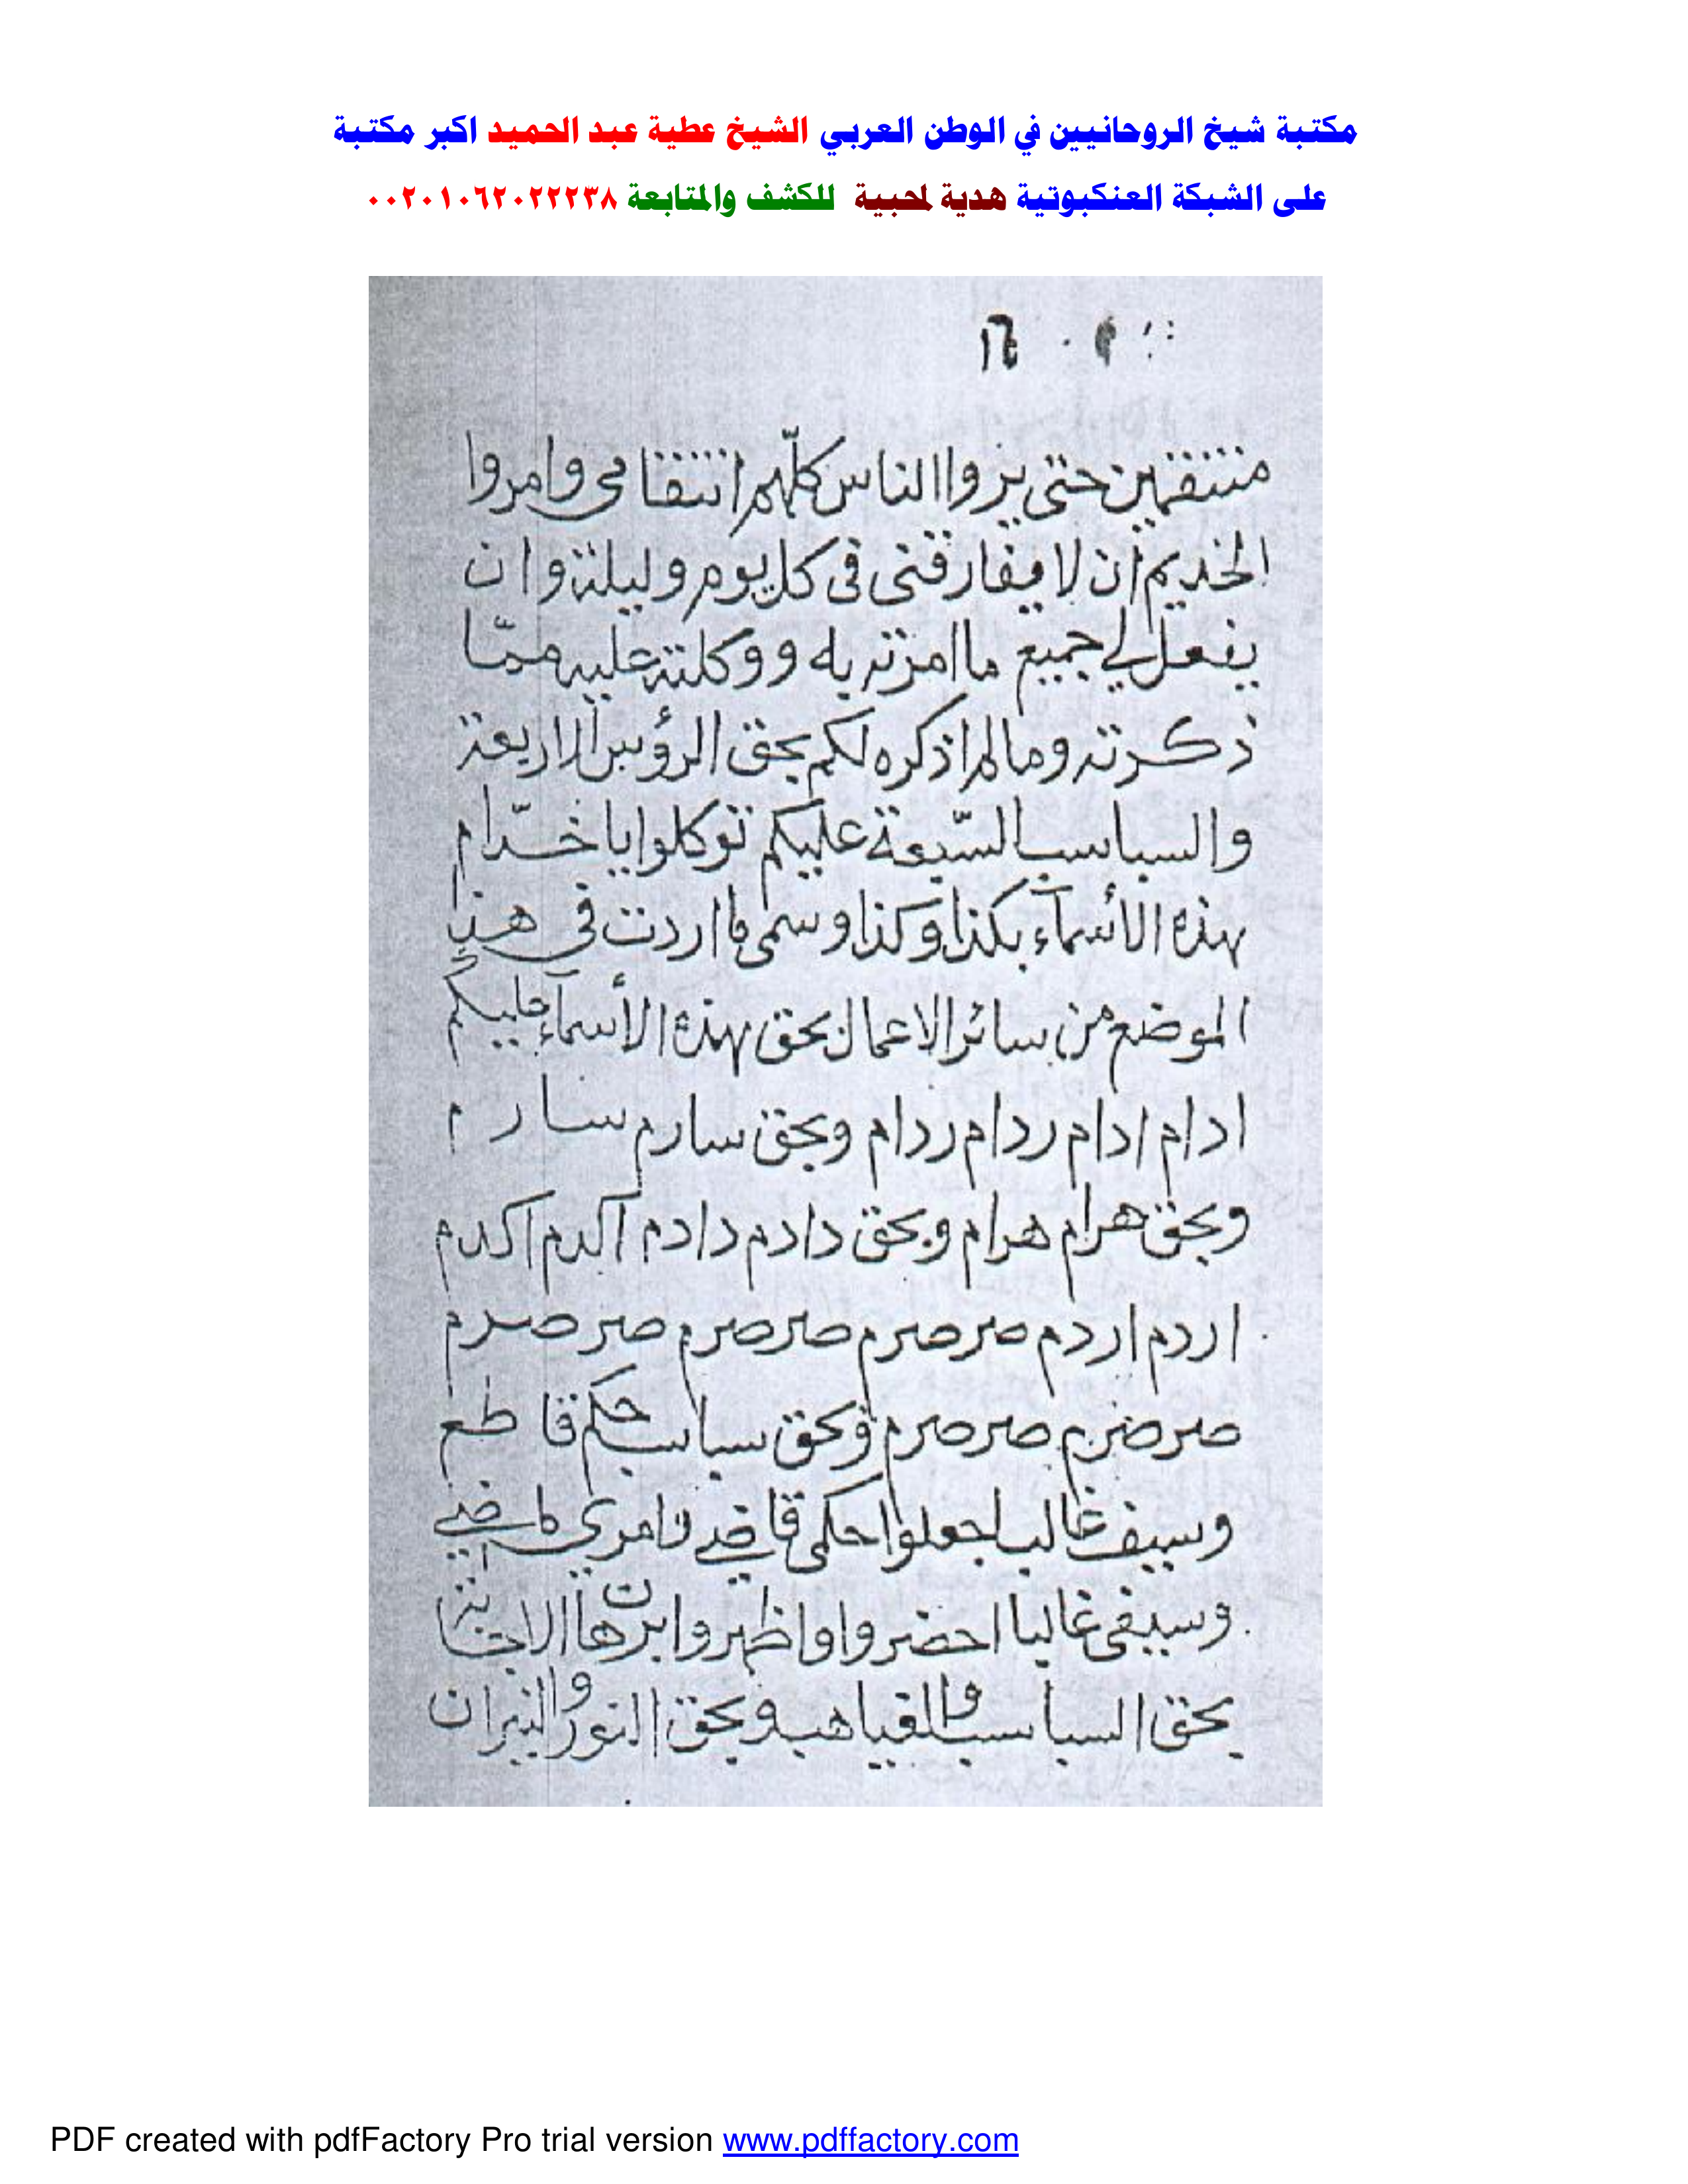 مكتبة شيخ الروحانيين في الوطن العربي الشيخ عطية عبد الحميد اكبر مكتبة
على الشبكة العنكبوتية هدية لمحبية للكشف والمتابعة ٠٠٢٠١٠٦٢٠٢٢٢٣٨
منتقمين حتى يروا الناس كلّهم انتقامى وامروا
الخديم ان لا يفارقنى فى كل يوم وليلة وان
يفعل لي جميع ما امرته به ووكلته عليه ممّا
ذكرته وما لم اذكره لكم بحق الرؤس الاربعة
والسباسب السّبعة عليكم توكلوا يا خدّام
بهذه الأسمآء بكذا وكذا وسمى ما اردت فى هذا
الموضع من سائر الاعمال بحق بهذه الأسمآء عليكم
ادام ادام ردام ردام وبحق سارم سارم
وبحق هرام هرام وبحق دادم دادم اكدم اكدم
اردم اردم صرصرم صرصرم صرصرم
صرصرم صرصرم وبحق سباسبكم قاطع
وسيف غالب اجعلوا حكمى قاضي وامري ماضي
وسيفى غالبا احضروا واظهروا برهان الاجابة
بحق السباسب والقياهب وبحق النور والنيران
PDF created with pdfFactory Pro trial version www.pdffactory.com